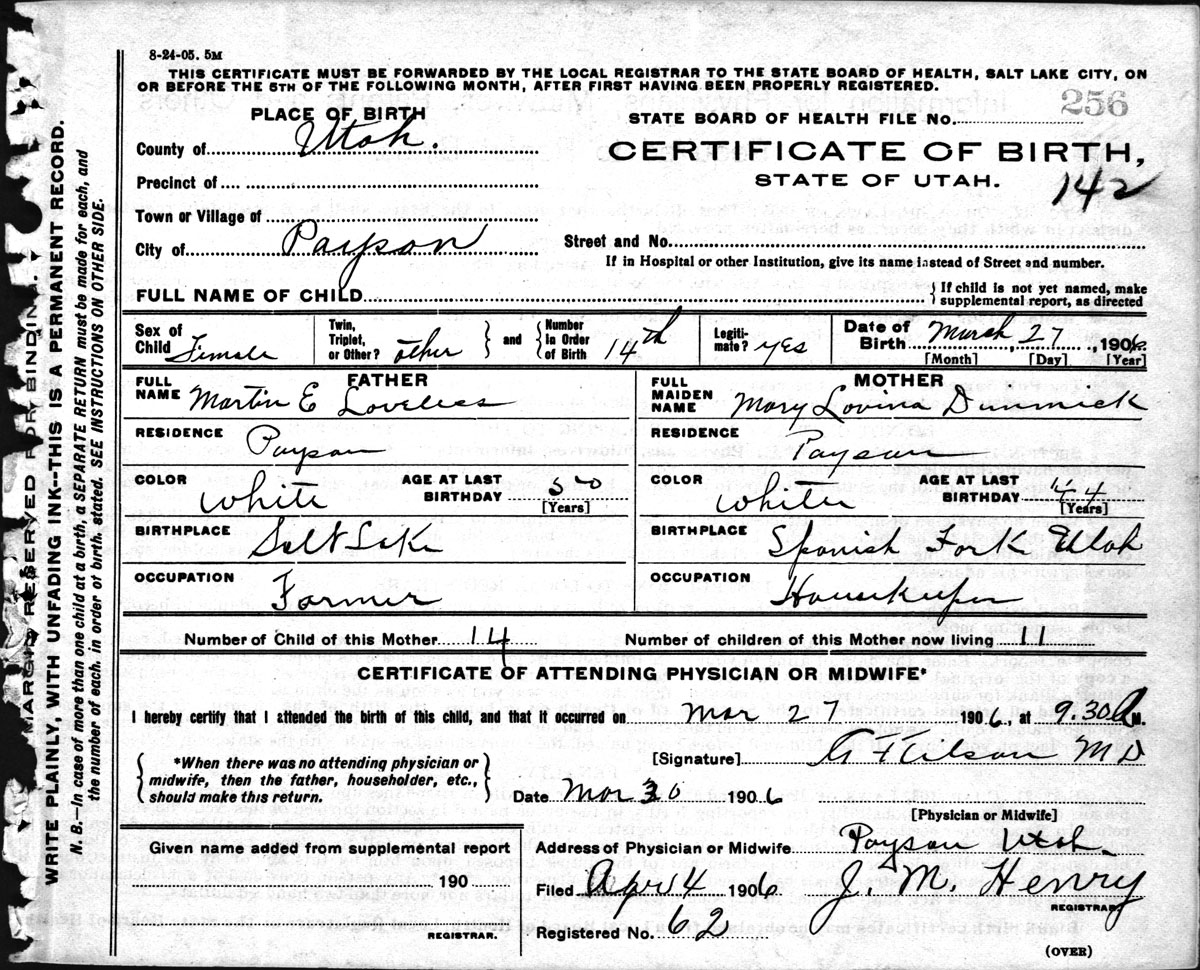 8-24-05. 5M
THIS CERTIFICATE MUST BE FORWARDED BY THE LOCAL REGISTRAR TO THE STATE BOARD OF HEALTH, SALT LAKE CITY, ON
OR BEFORE THE 5TH OF THE FOLLOWING MONTH, AFTER FIRST HAVING BEEN PROPERLY REGISTERED.
PLACE OF BIRTH
STATE BOARD OF HEALTH FILE No. 256
County of Utah.
CERTIFICATE OF BIRTH,
STATE OF UTAH.
142
Precinct of
Town or Village of
City of Payson
Street and No.
If in Hospital or other Institution, give its name instead of Street and number.
FULL NAME OF CHILD
If child is not yet named, make
supplemental report, as directed
Sex of Child Female
Twin, Triplet, or Other? other
and
Number in Order of Birth 14th
Legiti-mate? yes
Date of Birth March, 27, 1906.
[Month] [Day] [Year]
FATHER
FULL NAME Martin E Loveless
MOTHER
FULL MAIDEN NAME Mary Lovina Dimmick
RESIDENCE Payson
RESIDENCE Payson
COLOR White
AGE AT LAST BIRTHDAY 50
[Years]
COLOR White
AGE AT LAST BIRTHDAY 44
[Years]
BIRTHPLACE Salt Lake
BIRTHPLACE Spanish Fork Utah
OCCUPATION Farmer
OCCUPATION Housekeeper
Number of Child of this Mother 14
Number of children of this Mother now living 11
CERTIFICATE OF ATTENDING PHYSICIAN OR MIDWIFE*
I hereby certify that I attended the birth of this child, and that it occurred on Mar 27 1906, at 9.30 A M.
*When there was no attending physician or
midwife, then the father, householder, etc.,
should make this return.
[Signature] M D
Date Mar 30 1906
[Physician or Midwife]
Given name added from supplemental report
190
REGISTRAR.
Address of Physician or Midwife Payson Utah
Filed Apr 4 1906
J. M. Henry
REGISTRAR
Registered No. 62
(OVER)
MARGIN RESERVED FOR BINDING.
WRITE PLAINLY, WITH UNFADING INK--THIS IS A PERMANENT RECORD.
N. B.--In case of more than one child at a birth, a SEPARATE RETURN must be made for each, and
the number of each, in order of birth, stated. SEE INSTRUCTIONS ON OTHER SIDE.